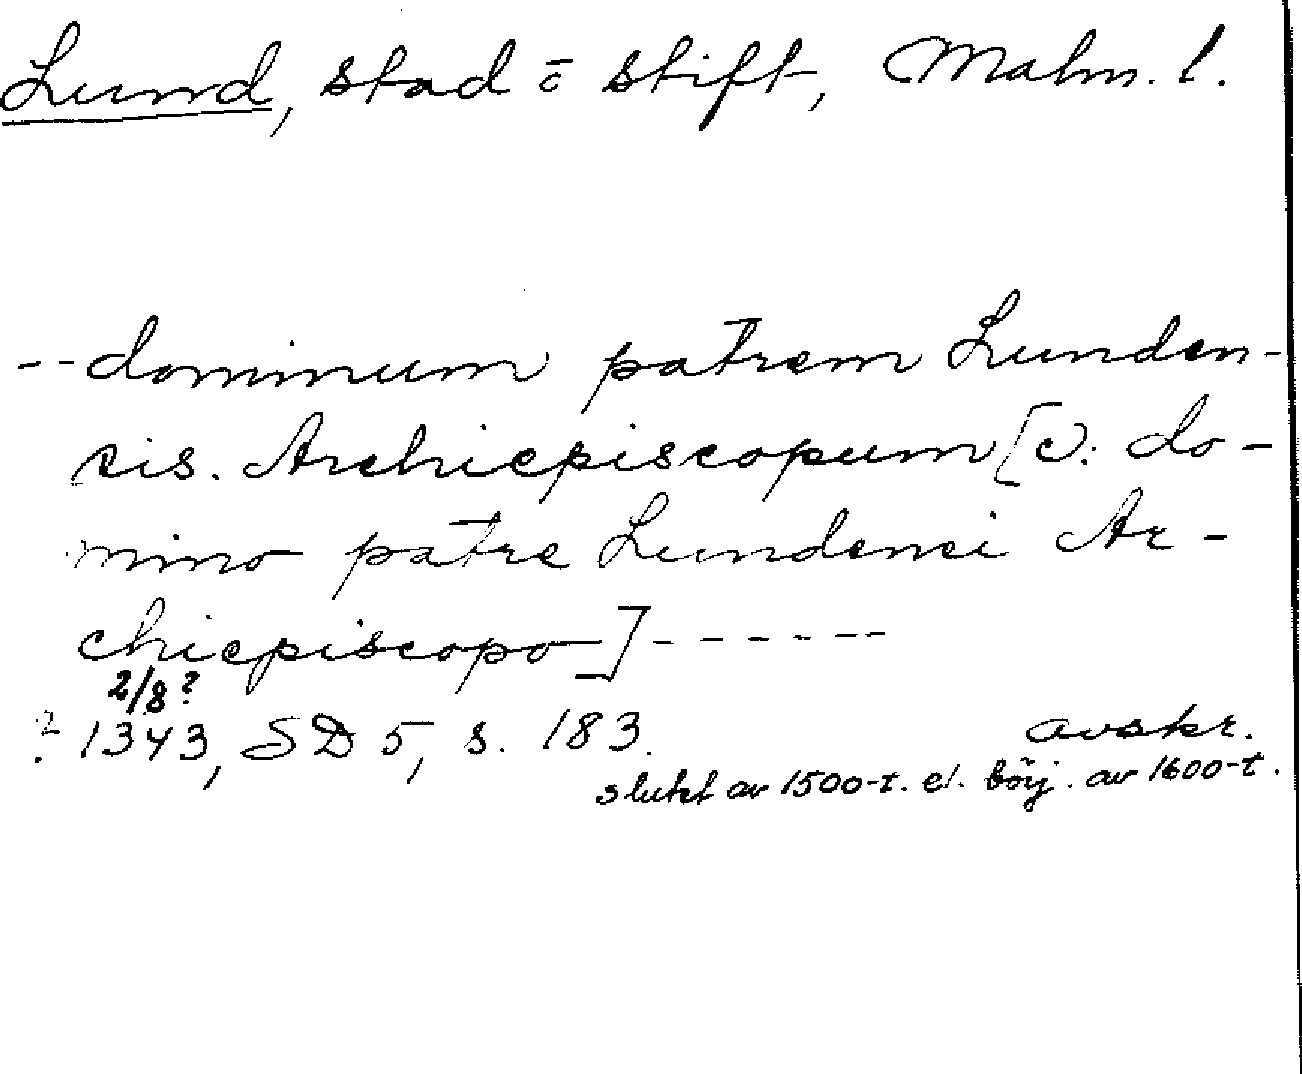 Lund, stad ō stift, Malm. l.
-- dominum patrem Lunden-
sis. Archiepiscopum [ɔ: do-
mino patre Lundensi Ar-
chiepiscopo] ------
2/8?
? 1343, SD 5, s. 183.
avskr.
slutet av 1500-t. el. börj. av 1600-t.